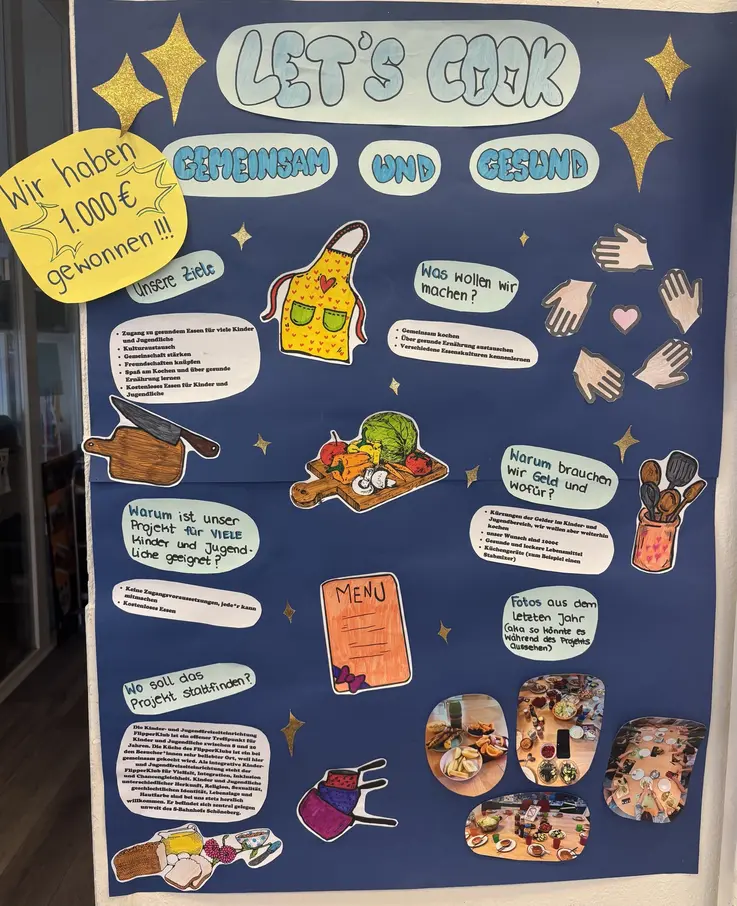 LET'S COOK
GEMEINSAM UND GESUND
Wir haben
1.000€
gewonnen!!!
Unsere Ziele
• Zugang zu gesundem Essen für viele Kinder
und Jugendliche
• Kulturaustausch
• Gemeinschaft stärken
• Freundschaften knüpfen
• Spaß am Kochen und über gesunde
Ernährung lernen
• Kostenloses Essen für Kinder und
Jugendliche
Was wollen wir
machen?
• Gemeinsam kochen
• Über gesunde Ernährung austauschen
• Verschiedene Essenskulturen kennenlernen
Warum brauchen
wir Geld und
wofür?
• Kürzungen der Gelder im Kinder- und
Jugendbereich, wir wollen aber weiterhin
kochen
• unser Wunsch sind 1000€
• Gesunde und leckere Lebensmittel
• Küchengeräte (zum Beispiel einen
Stabmixer)
Warum ist unser
Projekt für VIELE
Kinder und Jugend-
liche geeignet?
• Keine Zugangsvoraussetzungen, jede*r kann
mitmachen
• Kostenloses Essen
MENU
Fotos aus dem
letzten Jahr
(aka so könnte es
während des Projekts
aussehen)
Wo soll das
Projekt stattfinden?
Die Kinder- und Jugendfreizeiteinrichtung
FlipperKlub ist ein offener Treffpunkt für
Kinder und Jugendliche zwischen 8 und 20
Jahren. Die Küche des FlipperKlubs ist ein bei
den Besucher*innen sehr beliebter Ort, weil hier
gemeinsam gekocht wird. Als integrative Kinder-
und Jugendfreizeiteinrichtung steht der
FlipperKlub für Vielfalt, Integration, Inklusion
und Chancengleichheit. Kinder und Jugendliche
unterschiedlicher Herkunft, Religion, Sexualität,
geschlechtlichen Identität, Lebenslage und
Hautfarbe sind bei uns stets herzlich
willkommen. Er befindet sich zentral gelegen
unweit des S-Bahnhofs Schöneberg.